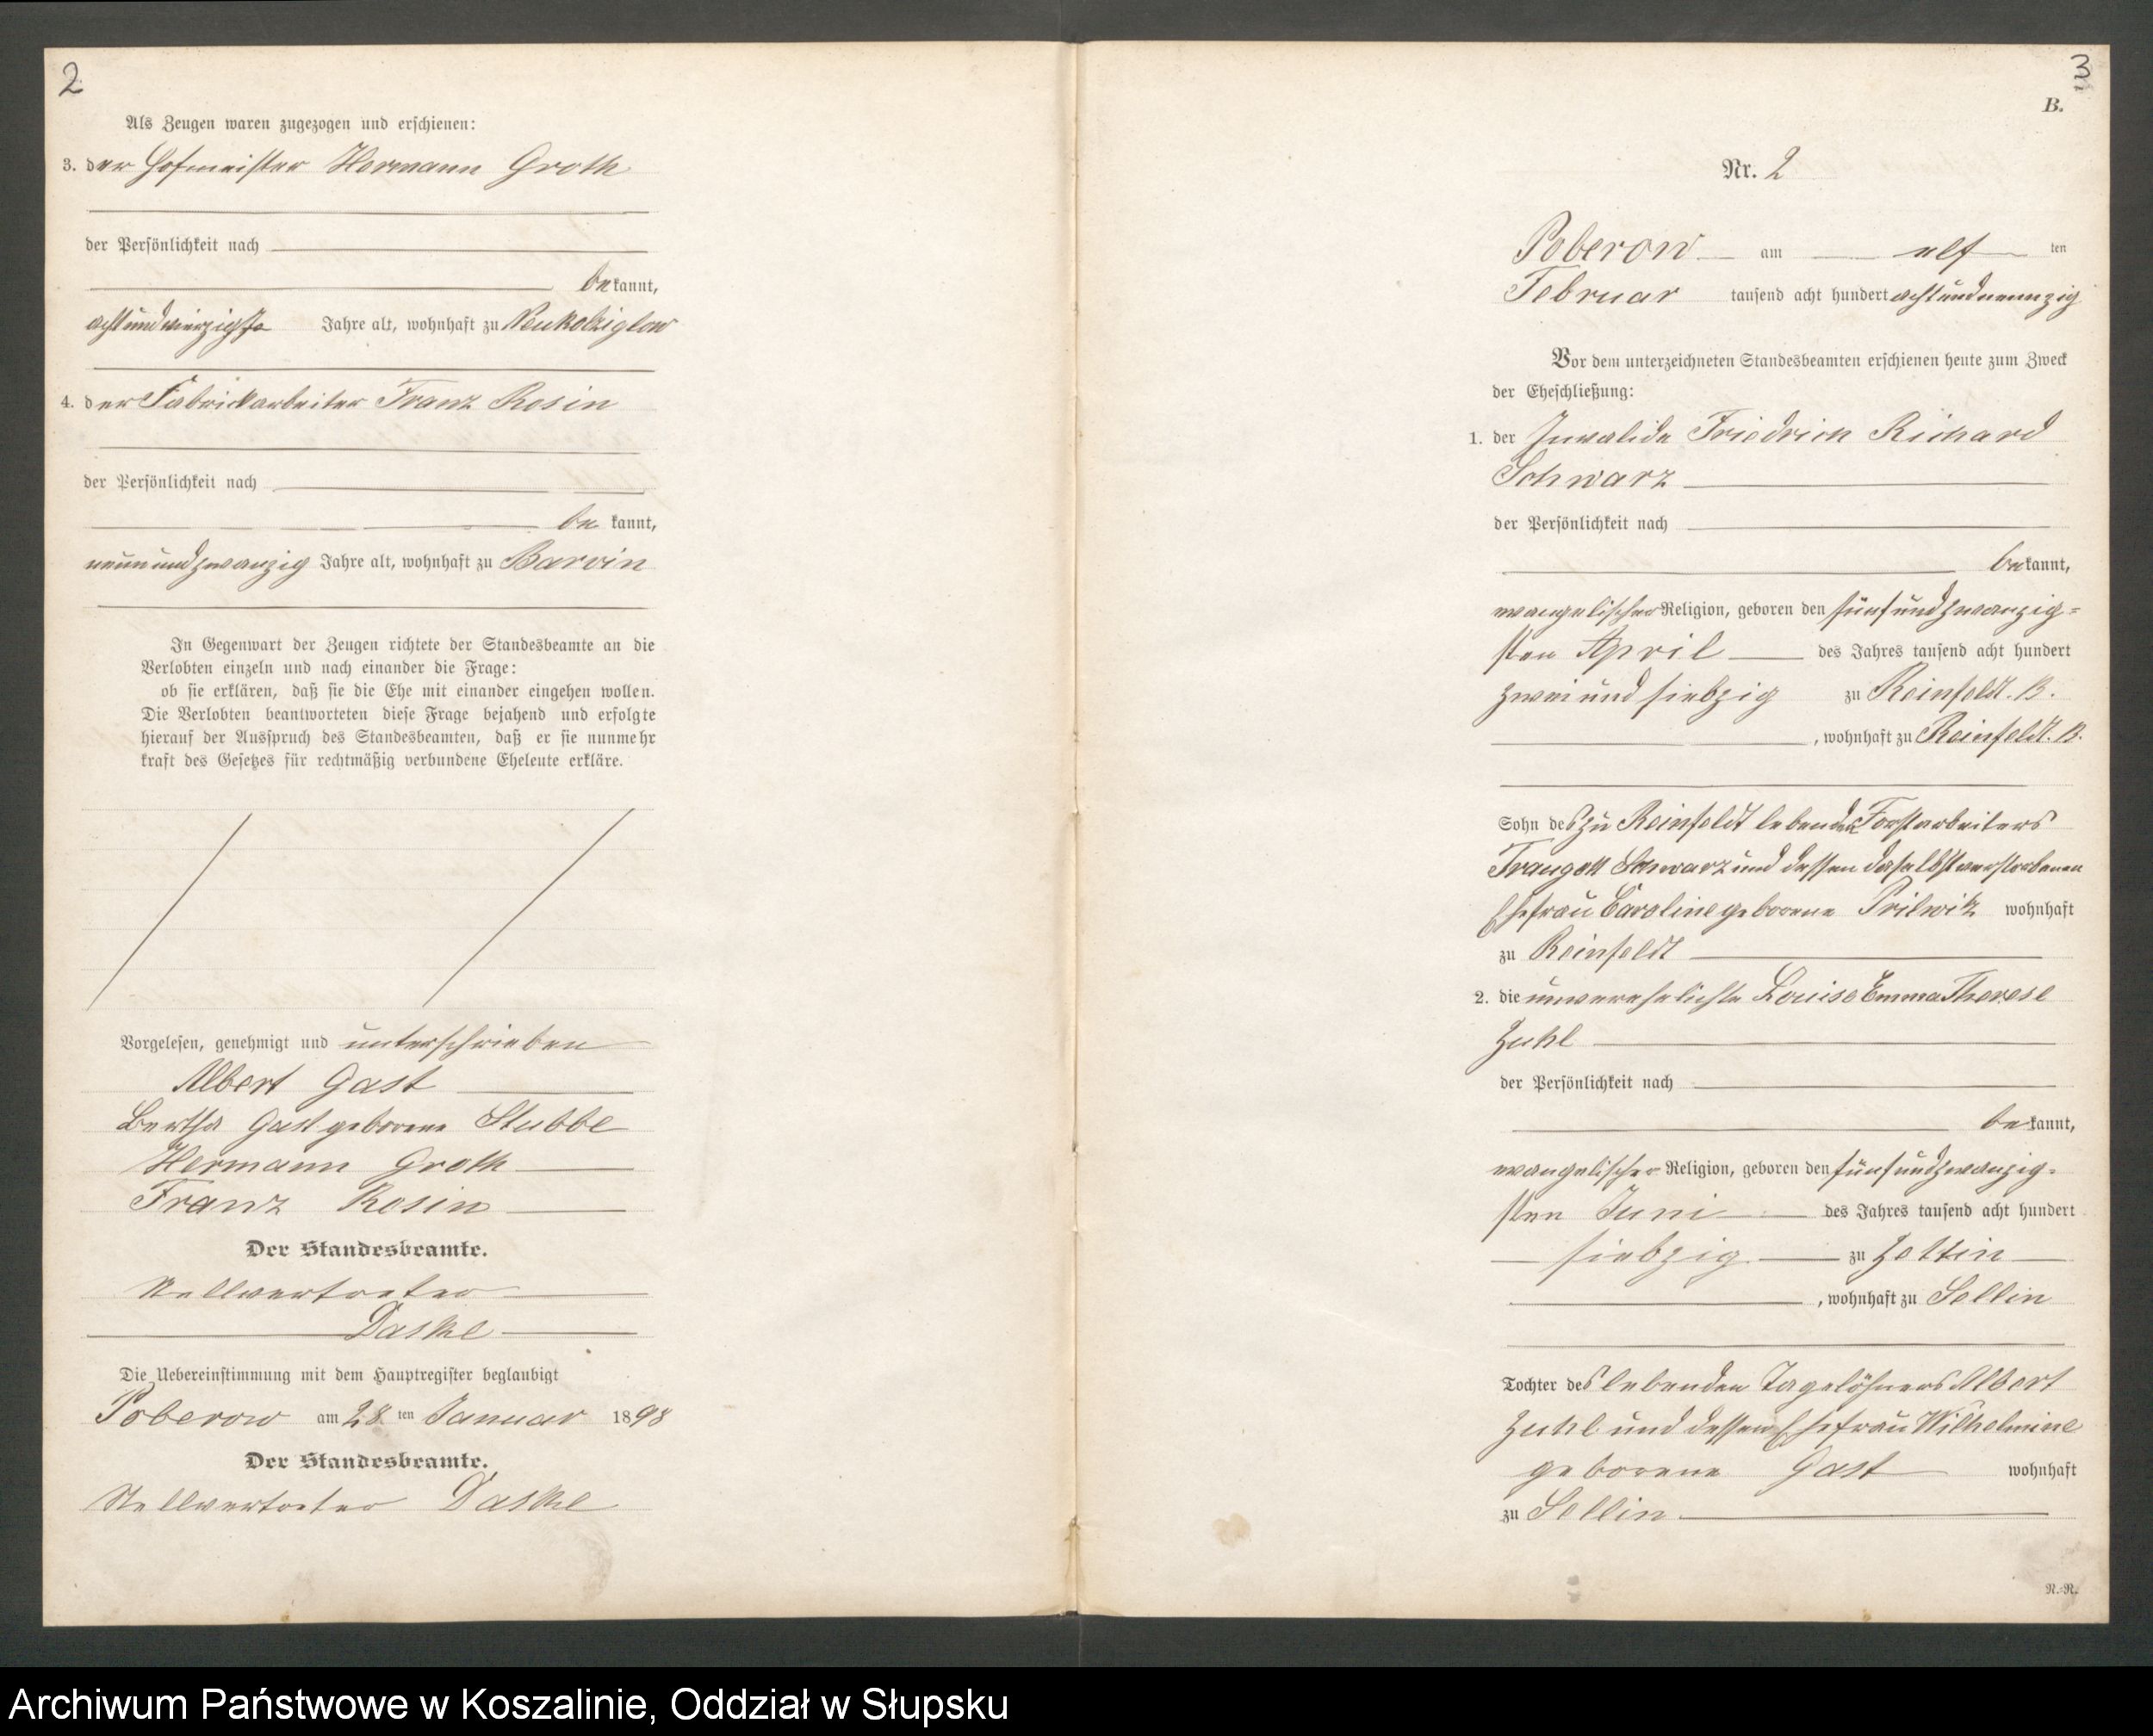 2
Als Zeugen waren zugezogen und erschienen:
3. der Hofmeister Hermann Groth
der Persönlichkeit nach
bekannt,
achtundvierzig Jahre alt, wohnhaft zu Neukolziglow
4. der Fabrickarbeiter Franz Rosin
der Persönlichkeit nach
be kannt,
neunundzwanzig Jahre alt, wohnhaft zu Barvin
In Gegenwart der Zeugen richtete der Standesbeamte an die
Verlobten einzeln und nach einander die Frage:
ob sie erklären, daß sie die Ehe mit einander eingehen wollen.
Die Verlobten beantworteten diese Frage bejahend und erfolgte
hierauf der Ausspruch des Standesbeamten, daß er sie nunmehr
kraft des Gesetzes für rechtmäßig verbundene Eheleute erkläre.
Vorgelesen, genehmigt und unterschrieben
Albert Gast
Bertha Gast geborene Stubbe
Hermann Groth
Franz Rosin
Der Standesbeamte.
Stellvertreter
Daske
Die Uebereinstimmung mit dem Hauptregister beglaubigt
Poberow am 28 ten Januar 1898
Der Standesbeamte.
Stellvertreter Daske
3
B.
Nr. 2
Poberow am elf ten
Februar tausend acht hundert achtundneunzig
Vor dem unterzeichneten Standesbeamten erschienen heute zum Zweck
der Eheschließung:
1. der Invalide Friedrich Richard
Schwarz
der Persönlichkeit nach
bekannt,
evangelischer Religion, geboren den fünfundzwanzig=
sten April des Jahres tausend acht hundert
zweiundsiebzig zu Reinfeldt. B.
, wohnhaft zu Reinfeldt. B.
Sohn des zu Reinfeldt lebenden Forstarbeiters
Traugott Schwarz und dessen daselbst verstorbenen
Ehefrau Caroline geborene Prilwitz wohnhaft
zu Reinfeldt
2. die unverehelichte Louise Emma Therese
Zuhl
der Persönlichkeit nach
bekannt,
evangelischer Religion, geboren den fünfundzwanzig=
sten Juni des Jahres tausend acht hundert
siebzig zu Zettin
, wohnhaft zu Sellin
Tochter des lebenden Tagelöhners Albert
Zuhl und dessen Ehefrau Wilhelmine
geborene Gast wohnhaft
zu Sellin
N.=R.
Archiwum Państwowe w Koszalinie, Oddział w Słupsku